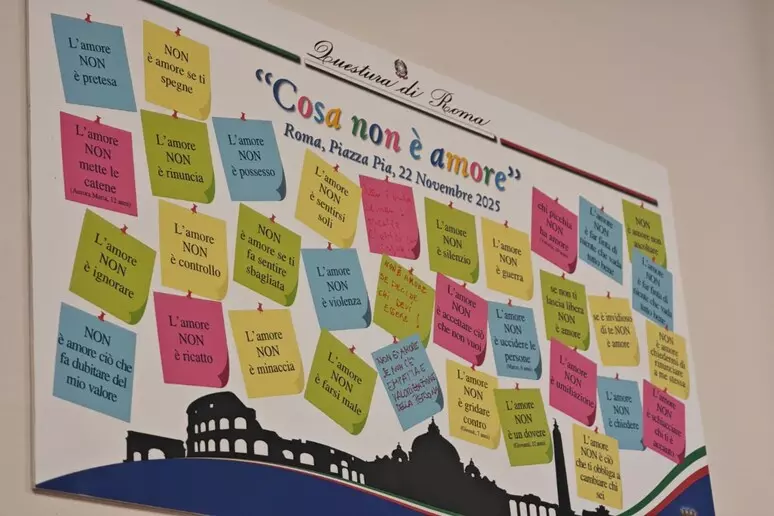 Questura di Roma
“Cosa non è amore”
Roma, Piazza Pia, 22 Novembre 2025
L'amore
NON
è pretesa
NON
è amore se ti
spegne
L'amore
NON
mette le
catene
L'amore
NON
è rinuncia
L'amore
NON
è possesso
L'amore
NON
è sentirsi
soli
L'amore
NON
è silenzio
L'amore
NON
è guerra
chi picchia
NON
ha
amore
L'amore
NON
è far finta di
niente che vada
tutto bene
NON
è amore non
ascoltare
L'amore
NON
è ignorare
L'amore
NON
è controllo
NON
è amore se ti
fa sentire
sbagliata
L'amore
NON
è violenza
NON È AMORE
SE DECIDE
CHI DEVI
ESSERE!
L'amore
NON
è accettare ciò
che non vuoi
L'amore
NON
è uccidere le
persone
se non ti
lascia libera
NON è
amore
se è invidioso
di te NON
è amore
L'amore
NON
è far finta di
niente che vada
tutto bene
NON
è amore ciò che
fa dubitare del
mio valore
L'amore
NON
è ricatto
L'amore
NON
è minaccia
L'amore
NON
è farsi male
NON È AMORE
SE NON C'È
EMPATIA E
DELLA PERSONA
L'amore
NON
è gridare
contro
L'amore
NON
è un dovere
L'amore
NON
è umiliazione
L'amore
NON
è chiedere
L'amore
NON
è schiacciare
chi ti è
accanto
L'amore
NON è ciò
che ti obbliga a
cambiare chi
sei